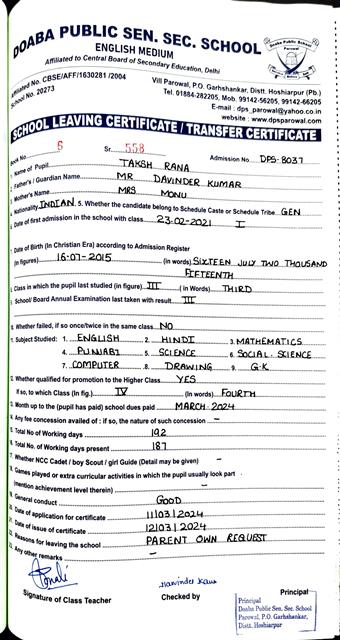 DOABA PUBLIC SEN. SEC. SCHOOL
ENGLISH MEDIUM
Affiliated to Central Board of Secondary Education, Delhi
Affiliated No. CBSE/AFF/1630281 /2004
School No. 20273
Vill Parowal, P.O. Garhshankar, Distt. Hoshiarpur (Pb.)
Tel. 01884-282205, Mob. 99142-56205, 99142-66205
E-mail : dps_parowal@yahoo.co.in
website : www.dpsparowal.com
SCHOOL LEAVING CERTIFICATE / TRANSFER CERTIFICATE
Book No. 6 Sr. 558 Admission No. DPS-8037
Name of Pupil TAKSH RANA
Father's / Guardian Name MR DAVINDER KUMAR
Mother's Name MRS MONU
Nationality INDIAN 5. Whether the candidate belong to Schedule Caste or Schedule Tribe GEN
Date of first admission in the school with class 23-02-2021 I
Date of Birth (In Christian Era) according to Admission Register
(in figures) 16-07-2015 (in words) SIXTEEN JULY TWO THOUSAND
FIFTEENTH
Class in which the pupil last studied (in figure) III ( in Words) THIRD
School/ Board Annual Examination last taken with result III
10. Whether failed, if so once/twice in the same class NO
Subject Studied: 1. ENGLISH 2. HINDI 3. MATHEMATICS
4. PUNJABI 5. SCIENCE 6. SOCIAL. SCIENCE
7. COMPUTER 8. DRAWING 9. G.K
Whether qualified for promotion to the Higher Class YES
If so, to which Class (In fig.) IV (In words) FOURTH
Month up to the (pupil has paid) school dues paid MARCH-2024
Any fee concession availed of : if so, the nature of such concession –
Total No of Working days 192
Total No. of Working days present 187
Whether NCC Cadet / boy Scout / girl Guide (Detail may be given) –
Games played or extra curricular activities in which the pupil usually look part
(mention achievement level therein) –
General conduct GOOD
Date of application for certificate 11/03/2024
Date of issue of certificate 12/03/2024
Reasons for leaving the school PARENT OWN REQUEST
Any other remarks –
Signature of Class Teacher
Checked by
Principal
Principal
Doaba Public Sen. Sec. School
Parowal, P.O. Garhshankar,
Distt. Hoshiarpur